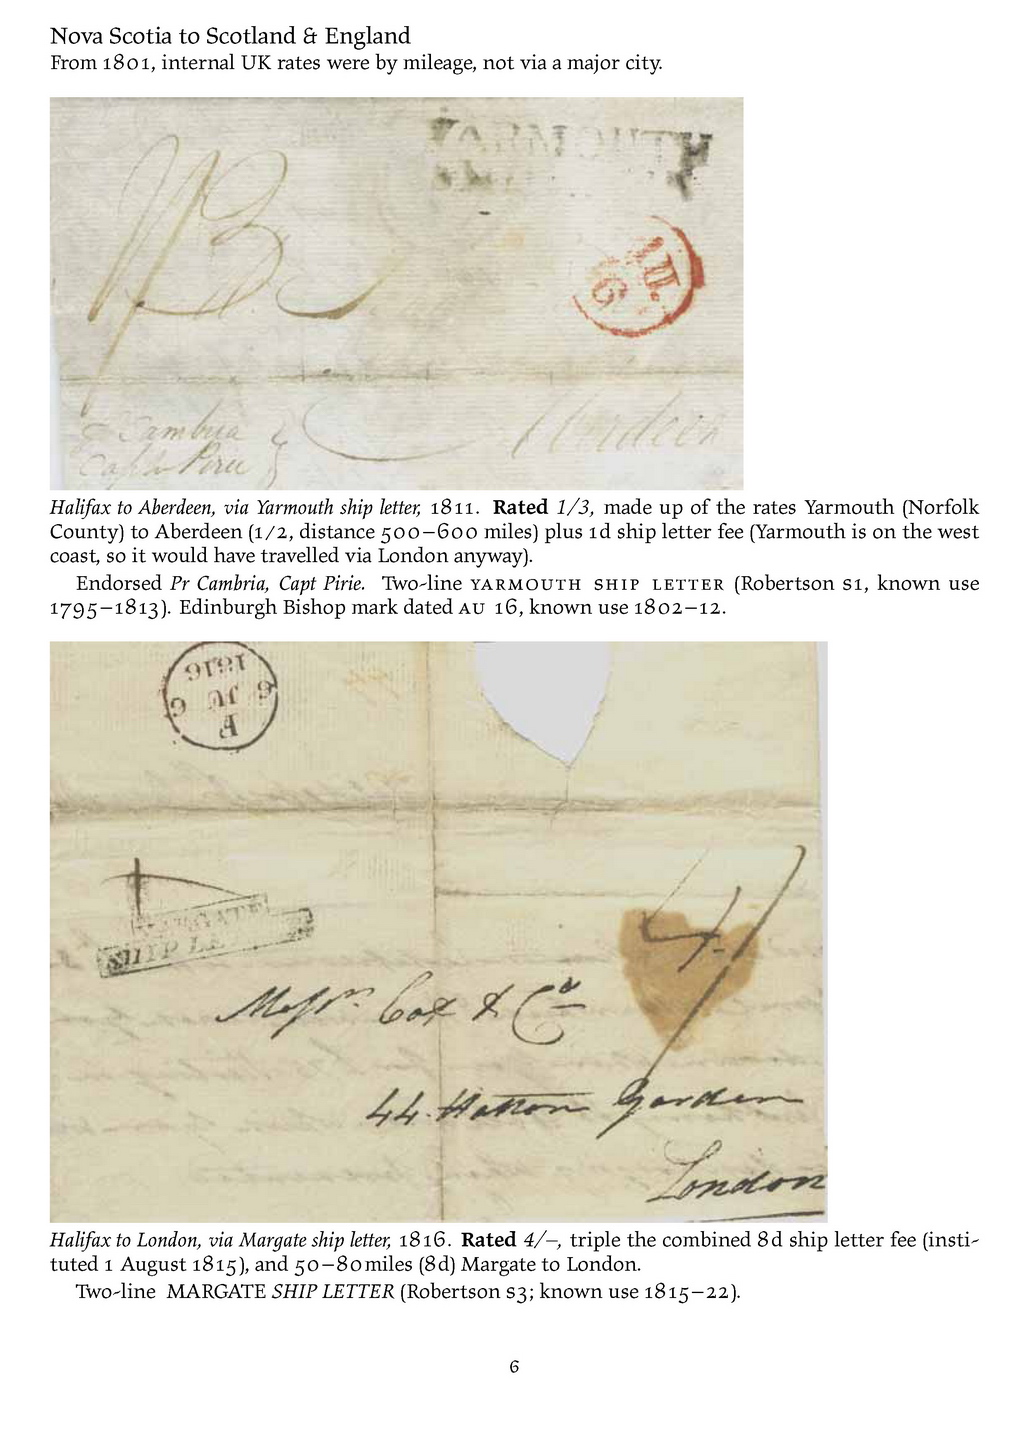 Nova Scotia to Scotland & England
From 1801, internal UK rates were by mileage, not via a major city.
YARMOUTH
1/3
16
Cambria
Capt Pirie
Halifax to Aberdeen, via Yarmouth ship letter, 1811. Rated 1/3, made up of the rates Yarmouth (Norfolk
County) to Aberdeen (1/2, distance 500–600 miles) plus 1d ship letter fee (Yarmouth is on the west
coast, so it would have travelled via London anyway).
Endorsed Pr Cambria, Capt Pirie. Two-line YARMOUTH SHIP LETTER (Robertson S1, known use
1795–1813). Edinburgh Bishop mark dated AU 16, known use 1802–12.
F
6 JU 6
1816
MARGATE
SHIP LE
4/
Messrs Cox & Co
44 Hatton Garden
London
Halifax to London, via Margate ship letter, 1816. Rated 4/–, triple the combined 8d ship letter fee (insti-
tuted 1 August 1815), and 50–80 miles (8d) Margate to London.
Two-line MARGATE SHIP LETTER (Robertson S3; known use 1815–22).
6